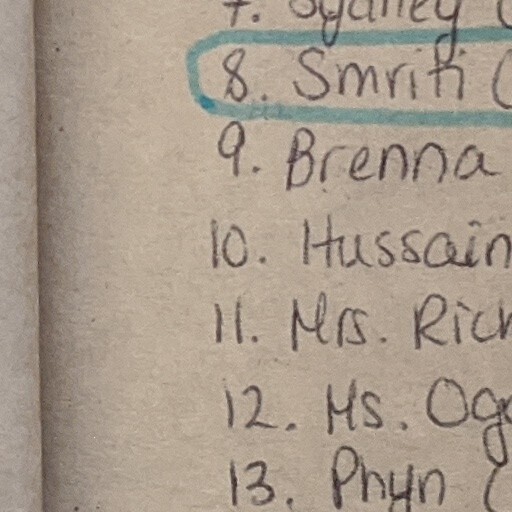 7. Sydney (
8. Smriti (
9. Brenna
10. Hussain
11. Mrs. Rich
12. Ms. Og
13. Phyn (